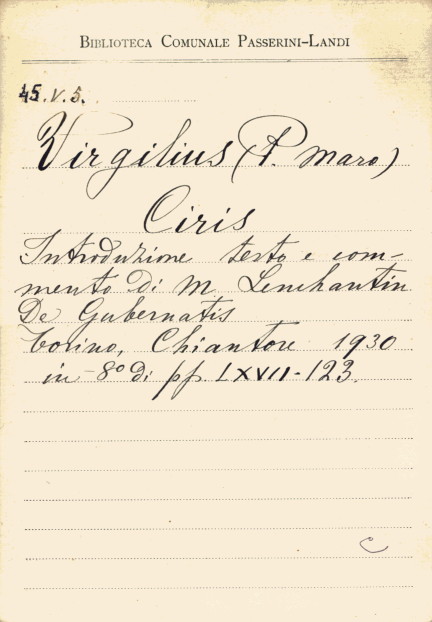 BIBLIOTECA COMUNALE PASSERINI-LANDI
45.V.5.
Virgilius (P. Maro)
Ciris
Introduzione testo e com-
mento di M. Lenchantin
De Gubernatis
Torino, Chiantore 1930
in-8° di pp. LXVII-123.
C